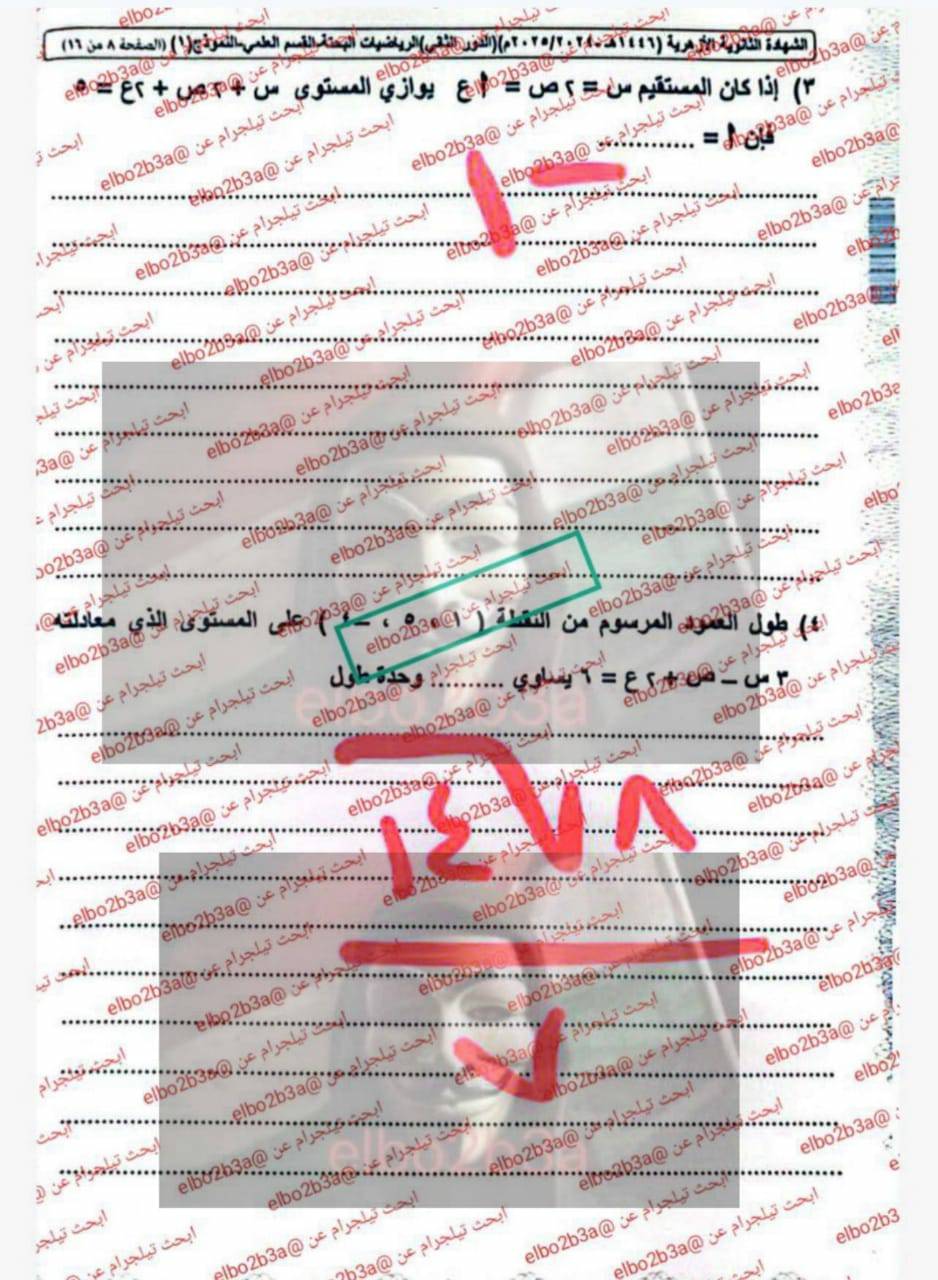 الشهادة الثانوية الأزهرية (١٤٤٦هـ-٢٠٢٤/٢٠٢٥م)(الدور الثاني)الرياضيات البحتة-القسم العلمي-النموذج(١) (الصفحة ٨ من ١٦)
٣) إذا كان المستقيم س = ٢ ص = أ ع يوازي المستوى س + ٢ ص + ٢ع = ٥
فإن أ = ............
-١
٤) طول العمود المرسوم من النقطة ( ١ ، ٥ ، -٤ ) على المستوى الذي معادلته
٣ س – ص + ٢ ع = ٦ يساوي .......... وحدة طول
elbo2b3a
٨√١٤
٧
elbo2b3a
ابحث تيلجرام عن @elbo2b3a